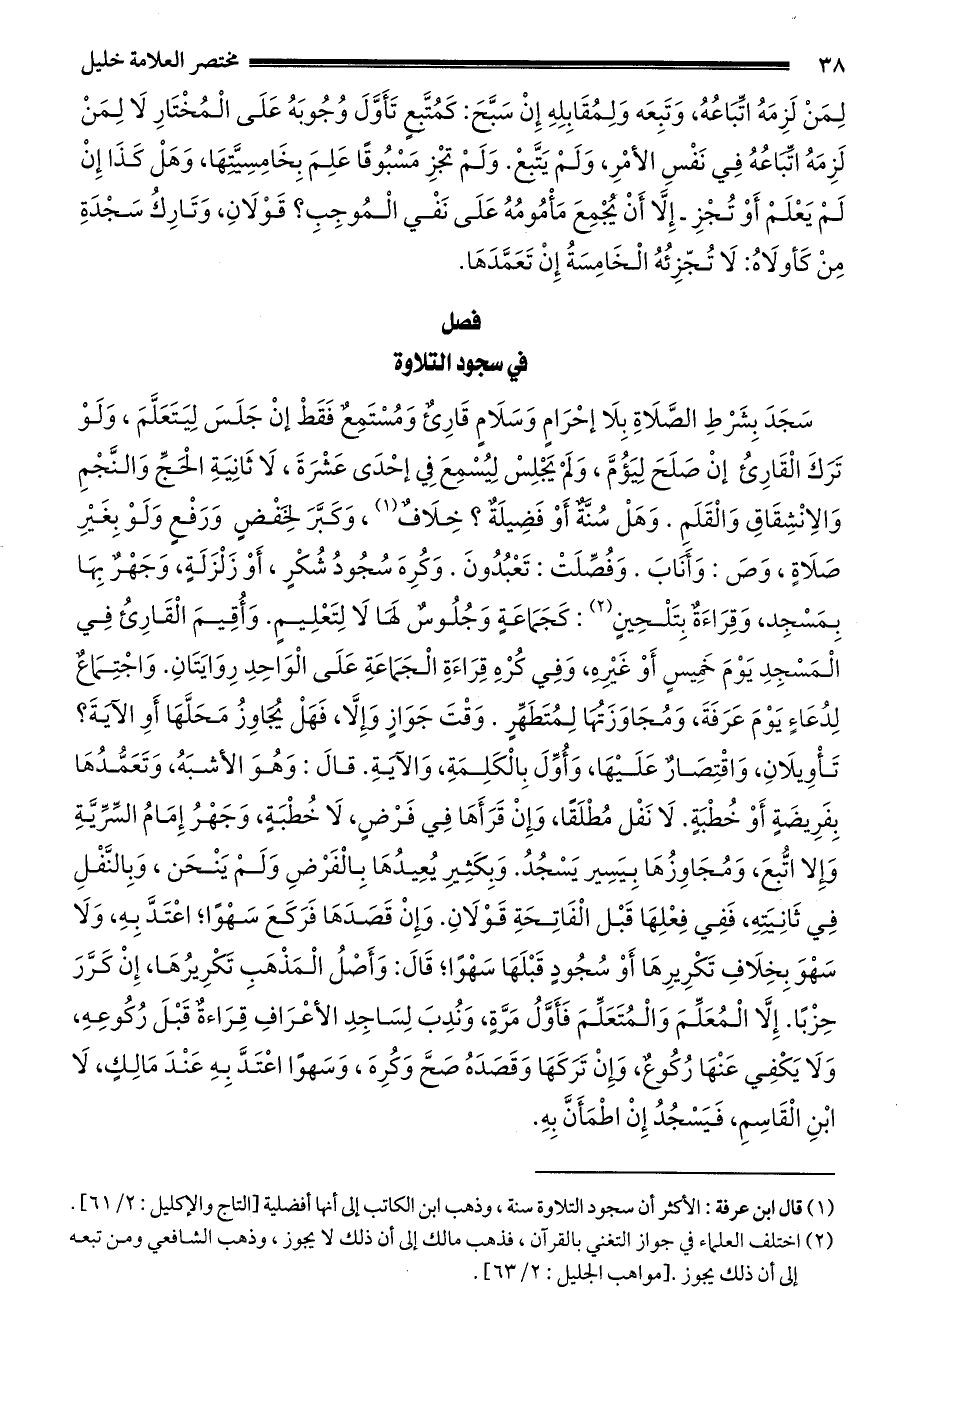 ٣٨ مختصر العلامة خليل
لِمَنْ لَزِمَهُ اتِّبَاعُهُ، وَتَبِعَه وَلِمُقَابِلِهِ إِنْ سَبَّحَ: كَمُتَّبِعٍ تَأَوَّلَ وُجُوبَهُ عَلَى الْمُخْتَارِ لَا لِمَنْ
لَزِمَهُ اتِّبَاعُهُ فِي نَفْسِ الأَمْرِ، وَلَمْ يَتَّبِعْ. وَلَمْ تَجْزِ مَسْبُوقًا عَلِمَ بِخَامِسِيَّتِهَا، وَهَلْ كَذَا إِنْ
لَمْ يَعْلَمْ أَوْ تُجْزِ ـ إِلَّا أَنْ يُجْمِعَ مَأْمُومُهُ عَلَى نَفْيِ الْمُوجِبِ؟ قَوْلَانِ، وَتَارِكُ سَجْدَةِ
مِنْ كَأُولَاهُ: لَا تُجْزِئُهُ الْخَامِسَةُ إِنْ تَعَمَّدَهَا.
فصل
في سجود التلاوة
سَجَدَ بِشَرْطِ الصَّلَاةِ بِلَا إِحْرَامٍ وَسَلَامٍ قَارِئٌ وَمُسْتَمِعٌ فَقَطْ إِنْ جَلَسَ لِيَتَعَلَّمَ ، وَلَوْ
تَرَكَ الْقَارِئُ إِنْ صَلَحَ لِيَؤُمَّ ، وَلَمْ يَجْلِسْ لِيُسْمِعَ فِي إِحْدَى عَشْرَةَ ، لَا ثَانِيَةِ الْحَجِّ وَالنَّجْمِ
وَالِانْشِقَاقِ وَالْقَلَمِ . وَهَلْ سُنَّةٌ أَوْ فَضِيلَةٌ ؟ خِلَافٌ(١) ، وَكَبَّرَ لِخَفْضٍ وَرَفْعٍ وَلَوْ بِغَيْرِ
صَلَاةٍ ، وَصَ : وَأَنَابَ . وَفُصِّلَتْ : تَعْبُدُونَ . وَكُرِهَ سُجُودُ شُكْرٍ ، أَوْ زَلْزَلَةٍ، وَجَهْرٌ بِهَا
بِمَسْجِدٍ، وَقِرَاءَةٌ بِتَلْحِينٍ(٢) : كَجَمَاعَةٍ وَجُلُوسٌ لَهَا لَا لِتَعْلِيمٍ. وَأُقِيمَ الْقَارِئُ فِي
الْمَسْجِدِ يَوْمَ خَمِيسٍ أَوْ غَيْرِهِ، وَفِي كُرْهِ قِرَاءَةِ الْجَمَاعَةِ عَلَى الْوَاحِدِ رِوَايَتَانِ. وَاجْتِمَاعٌ
لِدُعَاءٍ يَوْمَ عَرَفَةَ، وَمُجَاوَزَتُهَا لِمُتَطَهِّرٍ . وَقْتَ جَوَازٍ وَإِلَّا، فَهَلْ يُجَاوِزُ مَحَلَّهَا أَوِ الآيَةَ؟
تَأْوِيلَانِ، وَاقْتِصَارٌ عَلَيْهَا، وَأُوِّلَ بِالْكَلِمَةِ، وَالآيَةِ. قَالَ : وَهُوَ الأَشْبَهُ، وَتَعَمُّدُهَا
بِفَرِيضَةٍ أَوْ خُطْبَةٍ. لَا نَفْلٍ مُطْلَقًا، وَإِنْ قَرَأَهَا فِي فَرْضٍ، لَا خُطْبَةٍ، وَجَهْرُ إِمَامُ السِّرِّيَّةِ
وَإِلا اتُّبِعَ، وَمُجَاوِزُهَا بِيَسِيرٍ يَسْجُدُ. وَبِكَثِيرٍ يُعِيدُهَا بِالْفَرْضِ وَلَمْ يَنْحَنِ ، وَبِالنَّفْلِ
فِي ثَانِيَتِهِ، فَفِي فِعْلِهَا قَبْلَ الْفَاتِحَةِ قَوْلَانِ. وَإِنْ قَصَدَهَا فَرَكَعَ سَهْوًا؛ اعْتَدَّ بِهِ، وَلَا
سَهْوَ بِخِلَافِ تَكْرِيرِهَا أَوْ سُجُودٍ قَبْلَهَا سَهْوًا؛ قَالَ: وَأَصْلُ الْمَذْهَبِ تَكْرِيرُهَا، إِنْ كَرَّرَ
حِزْبًا. إِلَّا الْمُعَلِّمَ وَالْمُتَعَلِّمَ فَأَوَّلُ مَرَّةٍ، وَنُدِبَ لِسَاجِدِ الأَعْرَافِ قِرَاءَةٌ قَبْلَ رُكُوعِهِ،
وَلَا يَكْفِي عَنْهَا رُكُوعٌ، وَإِنْ تَرَكَهَا وَقَصَدَهُ صَحَّ وَكُرِهَ ، وَسَهْوًا اعْتَدَّ بِهِ عِنْدَ مَالِكٍ، لَا
ابْنِ الْقَاسِمِ، فَيَسْجُدُ إِنْ اطْمَأَنَّ بِهِ.
(١) قال ابن عرفة : الأكثر أن سجود التلاوة سنة ، وذهب ابن الكاتب إلى أنها أفضلية [التاج والإكليل : ٢/ ٦١].
(٢) اختلف العلماء في جواز التغني بالقرآن ، فذهب مالك إلى أن ذلك لا يجوز ، وذهب الشافعي ومن تبعه
إلى أن ذلك يجوز .[مواهب الجليل : ٢/ ٦٣].